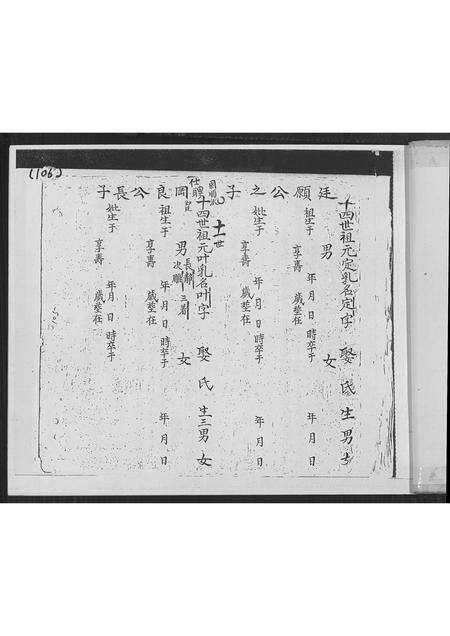 (106)
廷願公之子
十四世祖元定乳名定字 娶 氏 生 男 女
男 女
祖生于 年 月 日 時卒于 年 月 日
享壽 歲塟在
妣生于 年 月 日 時卒于 年 月 日
享壽 歲塟在
十世
岡良公長子
十四世祖元叶乳名叶字 娶 氏 生三男 女
男 女
三
祖生于 年 月 日 時卒于 年 月 日
享壽 歲塟在
妣生于 年 月 日 時卒于 年 月 日
享壽 歲塟在